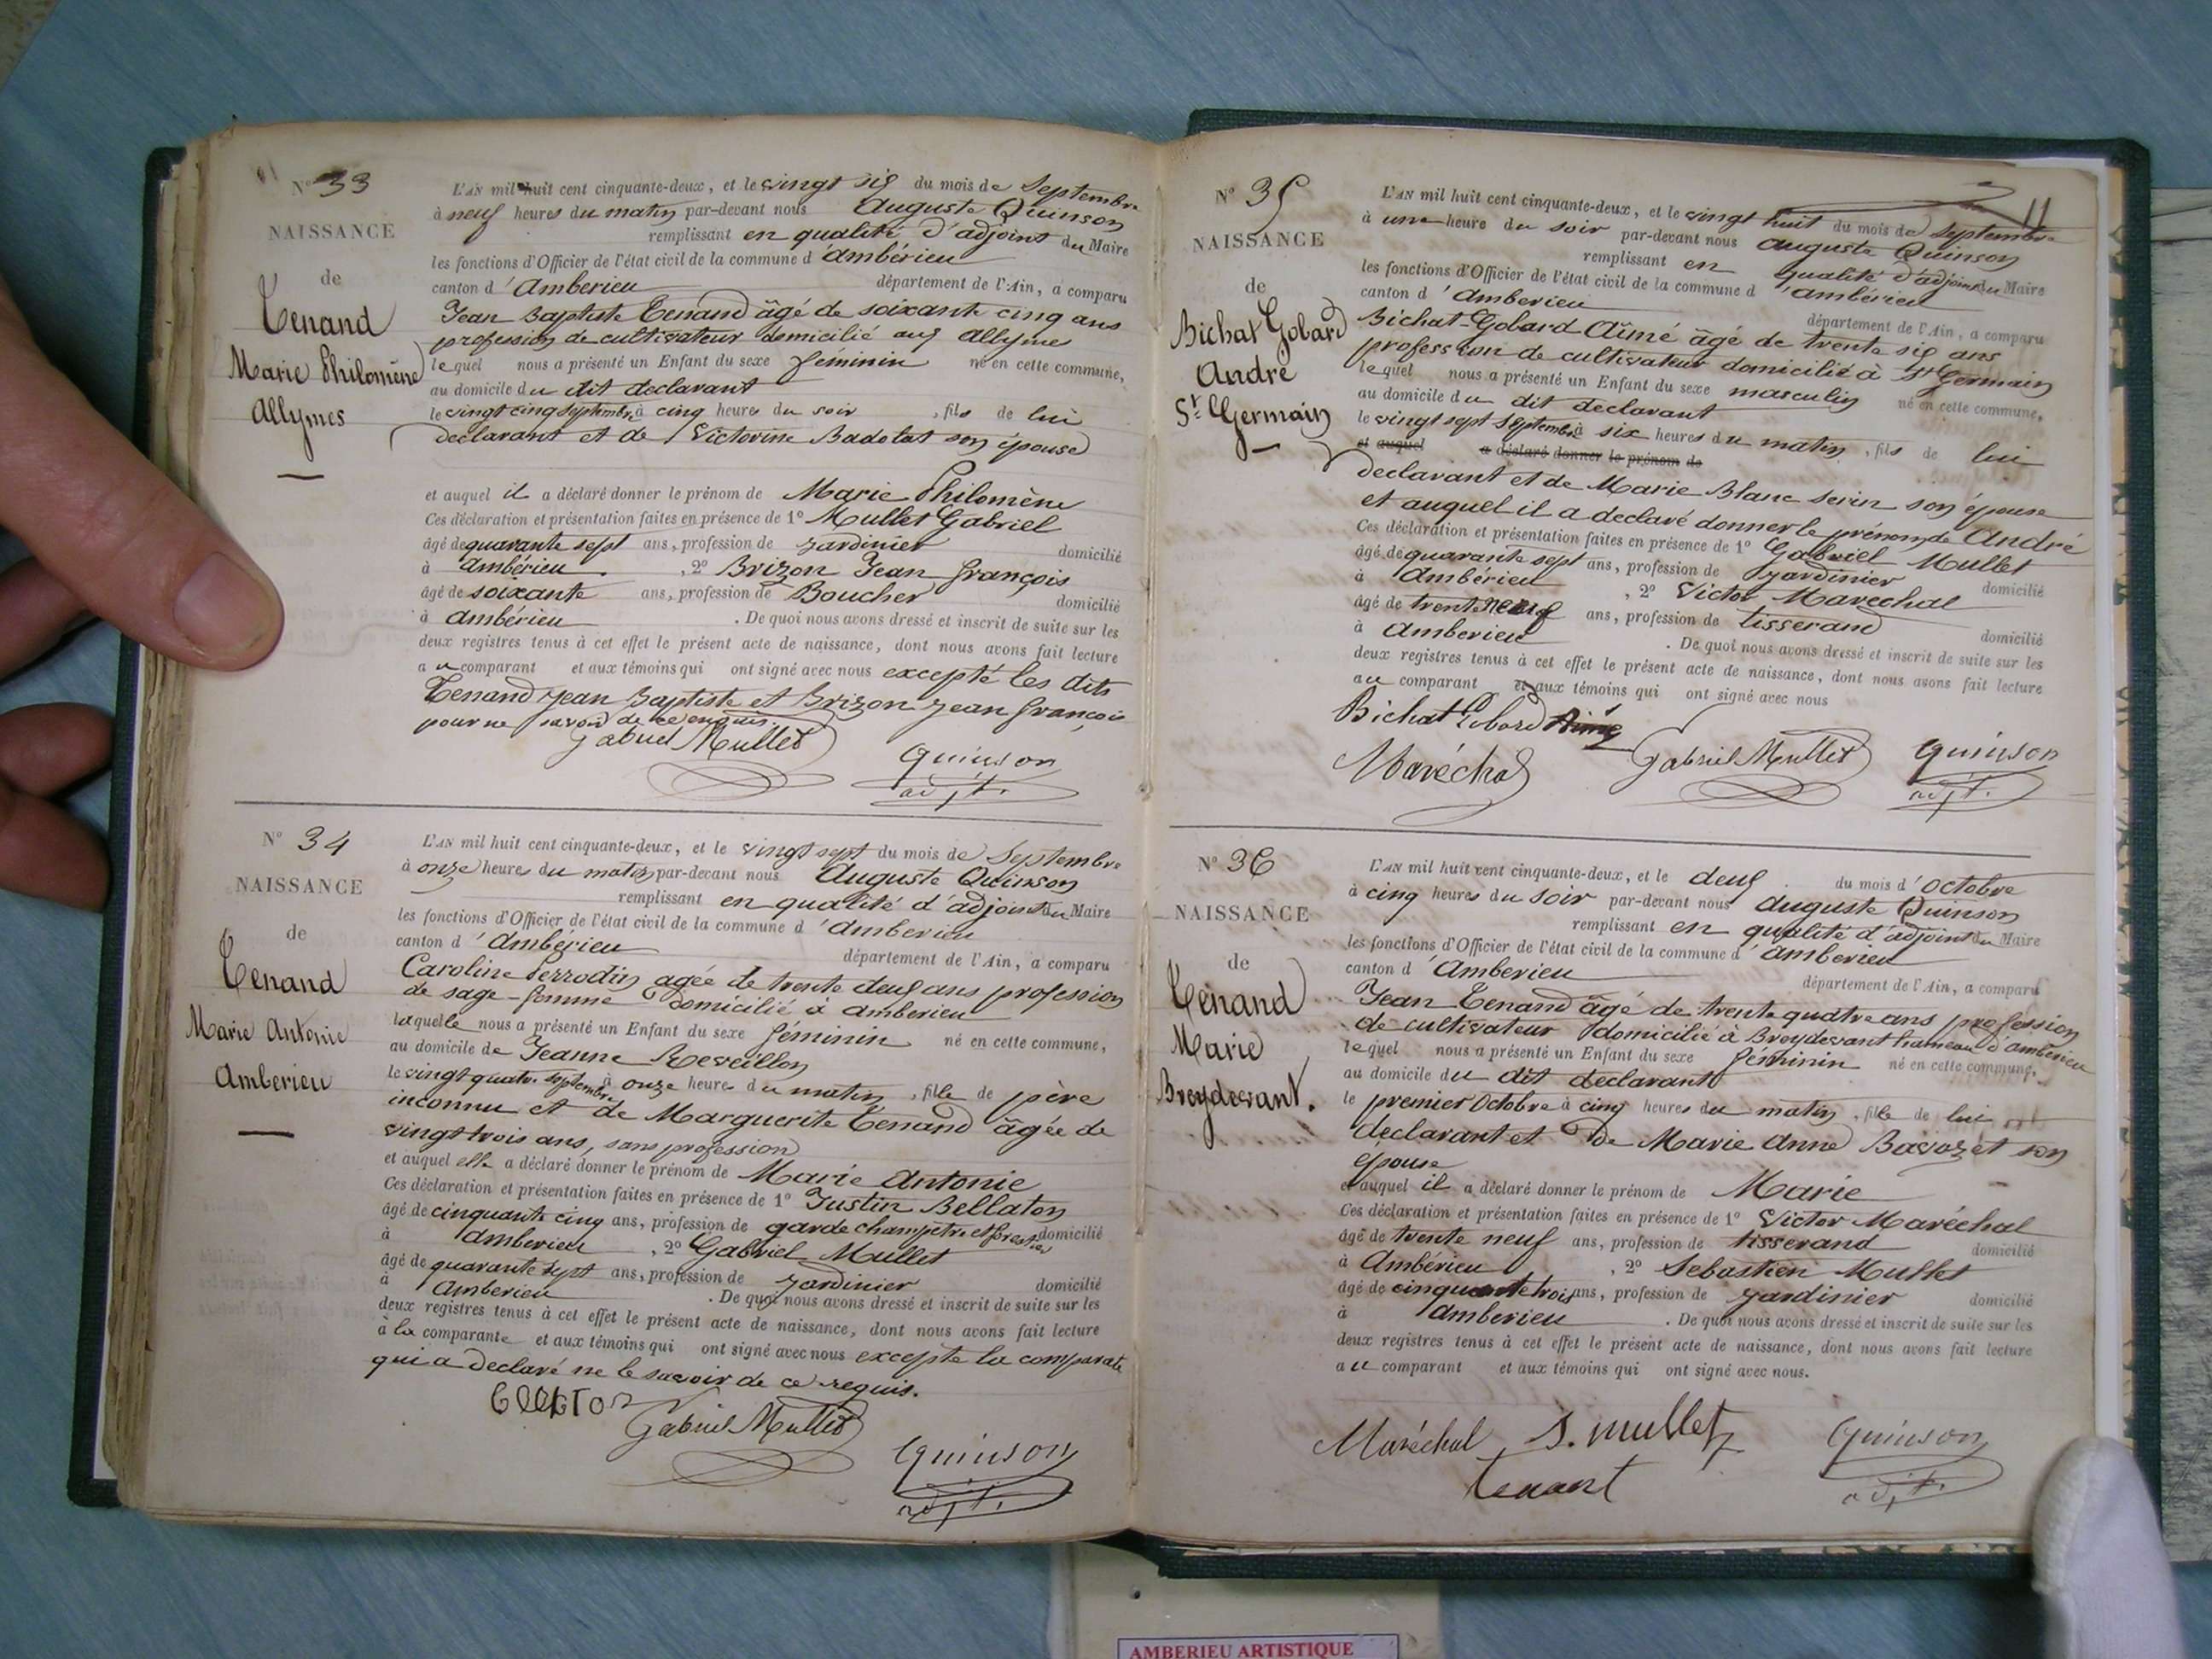 N° 33
NAISSANCE
de
Tenand
Marie Philomène
Allymes
L'AN mil huit cent cinquante-deux, et le vingt six du mois de Septembre
à neuf heures du matin par-devant nous Auguste Quinson
remplissant en qualité d'adjoint du Maire
les fonctions d'Officier de l'état civil de la commune d'ambérieu
canton d'Amberieu département de l'Ain, a comparu
Jean Baptiste Tenand âgé de soixante cinq ans
profession de cultivateur domicilié aux Allymes
lequel nous a présenté un Enfant du sexe feminin né en cette commune,
au domicile du dit declarant
le vingt cinq Septembre à cinq heures du soir, fils de lui
declarant et de Victorine Badolat son épouse
et auquel il a déclaré donner le prénom de Marie Philomène
Ces déclaration et présentation faites en présence de 1° Mullet Gabriel
âgé de quarante sept ans, profession de jardinier domicilié
à Ambérieu, 2° Brizon Jean françois
âgé de soixante ans, profession de Boucher domicilié
à ambérieu. De quoi nous avons dressé et inscrit de suite sur les
deux registres tenus à cet effet le présent acte de naissance, dont nous avons fait lecture
au comparant et aux témoins qui ont signé avec nous excepté les dits
Tenand Jean Baptiste et Brizon Jean françois
pour ne savoir de ce enquis.
Gabriel Mullet
Quinson
adjt.
N° 34
NAISSANCE
de
Tenand
Marie Antonie
Amberieu
L'AN mil huit cent cinquante-deux, et le vingt sept du mois de Septembre
à onze heures du matin par-devant nous Auguste Quinson
remplissant en qualité d'adjoint du Maire
les fonctions d'Officier de l'état civil de la commune d'Amberieu
canton d'Ambérieu département de l'Ain, a comparu
Caroline Perrodin agée de trente deux ans profession
de sage-femme domicilié à amberieu
laquelle nous a présenté un Enfant du sexe féminin né en cette commune,
au domicile de Jeanne Reveillon
le vingt quatre Septembre à onze heures du matin, fille de père
inconnu et de Marguerite Tenand âgée de
vingt trois ans, sans profession
et auquel elle a déclaré donner le prénom de Marie Antonie
Ces déclaration et présentation faites en présence de 1° Justin Bellaton
âgé de cinquante cinq ans, profession de garde champetre et forestier domicilié
à Amberieu, 2° Gabriel Mullet
âgé de quarante sept ans, profession de jardinier domicilié
à Amberieu. De quoi nous avons dressé et inscrit de suite sur les
deux registres tenus à cet effet le présent acte de naissance, dont nous avons fait lecture
à la comparante et aux témoins qui ont signé avec nous excepté la comparate
qui a declaré ne le savoir de ce requis.
Gabriel Mullet
Quinson
adjt.
11
N° 35
NAISSANCE
de
Bichat Gobard
André
St. Germain
L'AN mil huit cent cinquante-deux, et le vingt huit du mois de Septembre
à une heure du soir par-devant nous Auguste Quinson
remplissant en qualité d'adjoint du Maire
les fonctions d'Officier de l'état civil de la commune d'ambérieu
canton d'Amberieu département de l'Ain, a comparu
Bichat-Gobard Aimé âgé de trente six ans
profession de cultivateur domicilié à St Germain
lequel nous a présenté un Enfant du sexe masculin né en cette commune,
au domicile du dit declarant
le vingt sept Septembre à six heures du matin, fils de lui
et auquel a déclaré donner le prénom de
declarant et de Marie Blanc serin son épouse
et auquel il a declaré donner le prénom de André
Ces déclaration et présentation faites en présence de 1° Gabriel Mullet
âgé de quarante sept ans, profession de jardinier domicilié
à Ambérieu, 2° Victor Marechal
âgé de trente neuf ans, profession de tisserand domicilié
à Amberieu. De quoi nous avons dressé et inscrit de suite sur les
deux registres tenus à cet effet le présent acte de naissance, dont nous avons fait lecture
au comparant et aux témoins qui ont signé avec nous
Bichat Gobard Aimé
Maréchal
Gabriel Mullet
Quinson
adjt.
N° 36
NAISSANCE
de
Tenand
Marie
Breydevant.
L'AN mil huit cent cinquante-deux, et le deux du mois d'Octobre
à cinq heures du soir par-devant nous Auguste Quinson
remplissant en qualité d'adjoint du Maire
les fonctions d'Officier de l'état civil de la commune d'amberieu
canton d'Amberieu département de l'Ain, a comparu
Jean Tenand âgé de trente quatre ans profession
de cultivateur domicilié à Breydevant hameau d'ambérieu
lequel nous a présenté un Enfant du sexe féminin né en cette commune,
au domicile du dit declarant
le premier Octobre à cinq heures du matin, fille de lui
declarant et de Marie Anne Bavozet son
épouse
et auquel il a déclaré donner le prénom de Marie
Ces déclaration et présentation faites en présence de 1° Victor Maréchal
âgé de trente neuf ans, profession de tisserand domicilié
à Ambérieu, 2° Sebastien Mullet
âgé de cinquante trois ans, profession de jardinier domicilié
à Amberieu. De quoi nous avons dressé et inscrit de suite sur les
deux registres tenus à cet effet le présent acte de naissance, dont nous avons fait lecture
au comparant et aux témoins qui ont signé avec nous.
Maréchal
S. mullet
Quinson
adjt.
tenant
AMBERIEU ARTISTIQUE